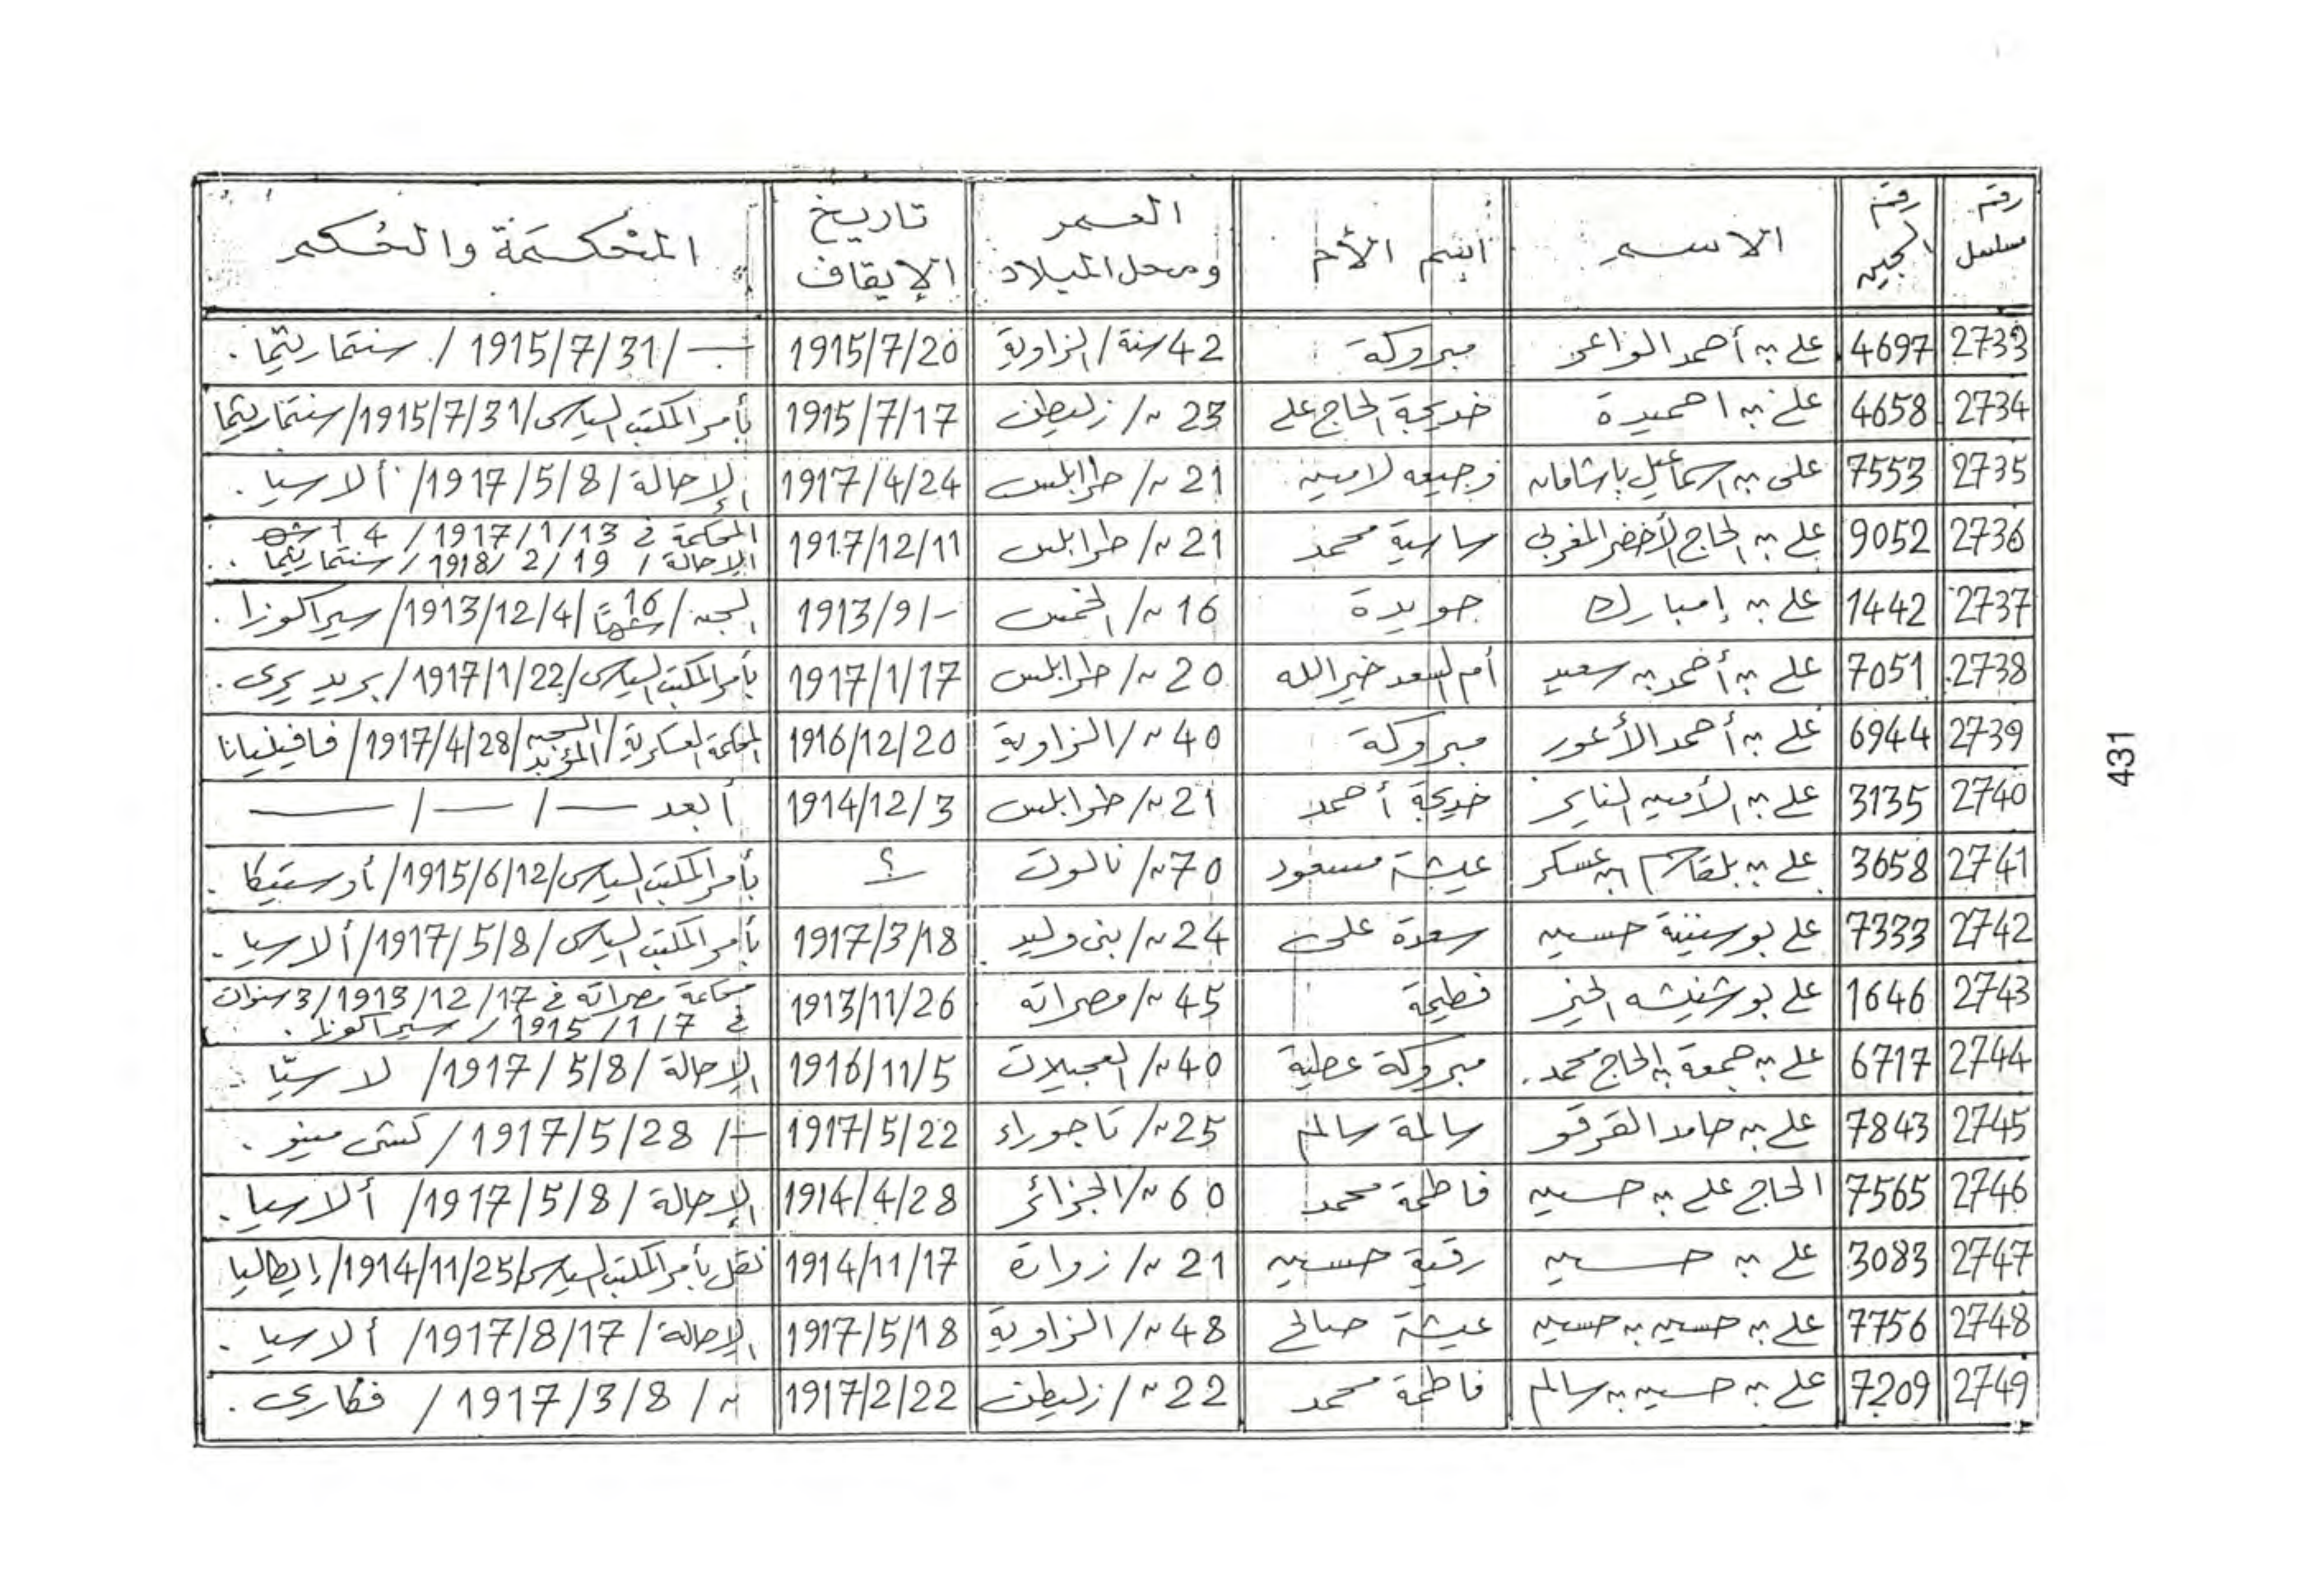 رقم مسلسل | رقم السجين | الاسم | اسم الأم | العمر ومحل الميلاد | تاريخ الإيقاف | المحكمة والحكم
2733 | 4697 | علي بن أحمد الواعر | مبروكة | 42 سنة/ الزاوية | 1915/7/20 | —/ 1915/7/31 / سنتماريتما.
2734 | 4658 | علي بن احميدة | خديجة الحاج علي | 23 //زليطن | 1915/7/17 | بأمر المكتب السياسي/1915/7/31/سنتماريتما
2735 | 7553 | على بن اسماعيل باشامان | وجيعه لامين | 21 //طرابلس | 1917/4/24 | الإحالة / 1917/5/8/ ألاسيا.
2736 | 9052 | علي بن الحاج الأخضر المغربي | ساسية محمد | 21 //طرابلس | 1917/12/11 | المحكمة في 1917/1/13 / 4 أشهر
الإحالة / 1918/2/19 / سنتماريتما.
2737 | 1442 | علي بن إمبارك | جويدة | 16 //الخمس | 1913/9/- | السجن/16 شهرًا/1913/12/4/سيراكوزا.
2738 | 7051 | علي بن أحمد بن سعيد | أم السعد خير الله | 20 //طرابلس | 1917/1/17 | بأمر المكتب السياسي/1917/1/22/بريد يري.
2739 | 6944 | علي بن أحمد الأعور | مبروكة | 40 //الزاوية | 1916/12/20 | المحكمة العسكرية/السجن المؤبد/1917/4/28/فافينيانا
2740 | 3135 | علي بن الأمين الناير | خديجة أحمد | 21 //طرابلس | 1914/12/3 | أبعد —/—/—
2741 | 3658 | علي بن بلقاسم بن عسكر | عيشة مسعود | 70 //نالوت | ؟ | بأمر المكتب السياسي/1915/6/12/أوستيكا.
2742 | 7333 | علي بوسنينة حسين | سعدة على | 24 //بنى وليد | 1917/3/18 | بأمر المكتب السياسي/1917/5/8/ألاسيا.
2743 | 1646 | علي بوشنيشه الخير | فطيمة | 45 //مصراته | 1913/11/26 | محكمة مصراته في 1913/12/17/3 سنوات
في 1915/1/7 / سيراكوزا.
2744 | 6717 | علي بن جمعة بن الحاج محمد. | مبروكة عطية | 40 //العجيلات | 1916/11/5 | الإحالة /1917/5/8/ لاسيّا
2745 | 7843 | علي بن حامد القرقو | سالمة سالم | 25 //تاجوراء | 1917/5/22 | —/ 1917/5/28 / كستى مينو.
2746 | 7565 | الحاج علي بن حسين | فاطمة محمد | 60 //الجزائر | 1914/4/28 | الإحالة /1917/5/8/ ألاسيا.
2747 | 3083 | علي بن حسين | رقية حسين | 21 //زوارة | 1914/11/17 | نقل بأمر المكتب السياسي/1914/11/25/إيطاليا
2748 | 7756 | علي بن حسين بن حسين | عيشة صالح | 48 //الزاوية | 1917/5/18 | الإحالة /1917/8/17/ ألاسيا.
2749 | 7209 | علي بن حسين بن سالم | فاطمة محمد | 22 //زليطن | 1917/2/22 | // 1917/3/8 / فكاري.
431